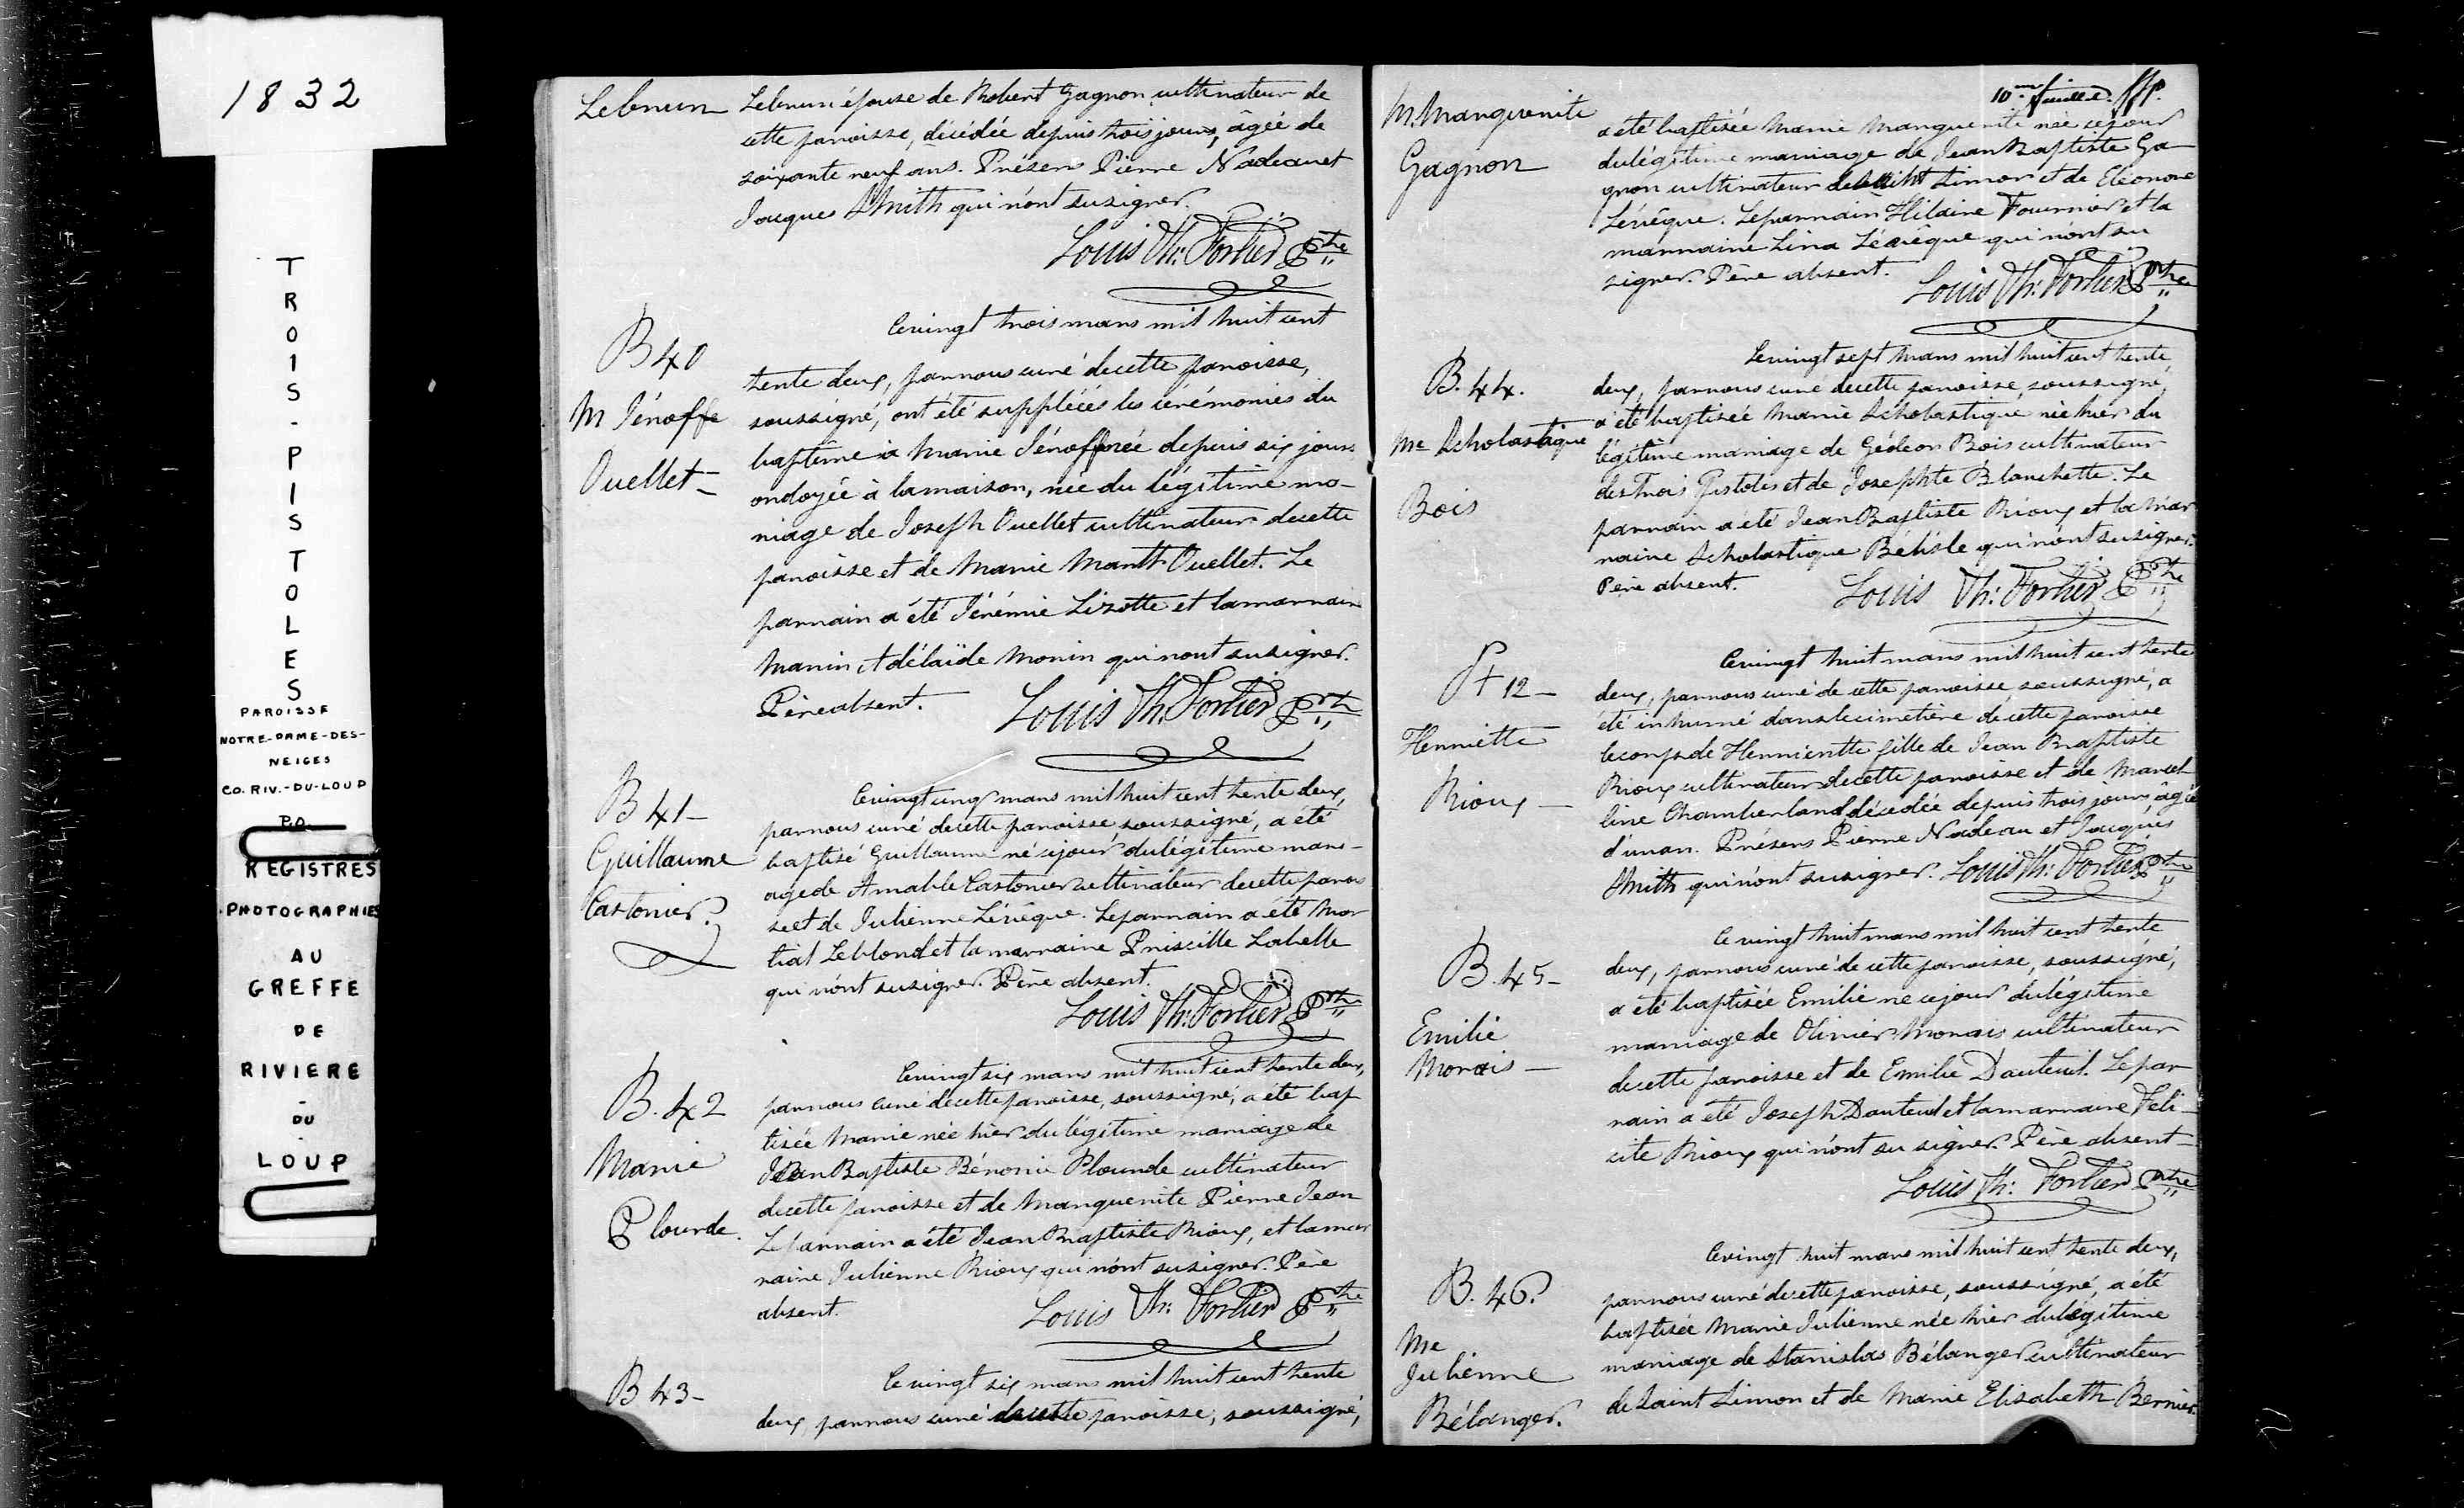 1832
TROIS-PISTOLES
PAROISSE
NOTRE-DAME-DES-
NEIGES
CO. RIV.-DU-LOUP
P.Q.
REGISTRES
PHOTOGRAPHIES
AU
GREFFE
DE
RIVIERE
-
DU
LOUP
Lebrun
Lebrun épouse de Robert Gagnon cultivateur de
cette paroisse, décédée depuis trois jours, âgée de
soixante neuf ans. Présens Pierre Nadeau et
Jacques Smith qui n'ont su signer.
Louis Th: Fortier Ptre
B 40
M Génoffe
Ouellet -
Le vingt trois mars mil huit cent
trente deux, par nous curé de cette paroisse,
soussigné, ont été suppléées les cérémonies du
baptême à Marie Génoffe née depuis six jours
ondoyée à la maison, née du légitime ma-
riage de Joseph Ouellet cultivateur de cette
paroisse et de Marie Marth Ouellet. Le
parrain a été Jérémie Lizotte et la marraine
Marie Adélaïde Morin qui n'ont su signer.
Père absent.
Louis Th. Fortier Ptre
B 41 -
Guillaume
Castonier
Le vingt cinq mars mil huit cent trente deux,
par nous curé de cette paroisse soussigné, a été
baptisé Guillaume né ce jour du légitime mari-
age de Amable Castonier cultivateur de cette parois
se et de Julienne Lévêque. Le parrain a été Mar
tial Leblond et la marraine Priscille Labelle
qui n'ont su signer. Père absent.
Louis Th: Fortier Ptre
B. 42
Marie
Plourde.
Le vingt six mars mil huit cent trente deux,
par nous curé de cette paroisse, soussigné, a été bap
tisée Marie née hier du légitime mariage de
Jean Baptiste Bénonie Plourde cultivateur
de cette paroisse et de Marguerite Pierre Jean
Le parrain a été Jean Baptiste Rioux, et la mar
raine Julienne Rioux qui n'ont su signer. Père
absent.
Louis Th: Fortier Ptre
B 43 -
Le vingt six mars mil huit cent trente
deux, par nous curé de cette paroisse, soussigné,
10me feuillet.
M. Marguerite
Gagnon
a été baptisée Marie Marguerite née ce jour
du légitime mariage de Jean Baptiste Ga
gnon cultivateur de Saint Simon et de Eléonore
Lévêque. Le parrain Hilaire Fournier et la
marraine Lina Lévêque qui n'ont su
signer. Père absent.
Louis Th: Fortier Ptre
B. 44.
Me Scholastique
Bois
Le vingt sept mars mil huit cent trente
deux, par nous curé de cette paroisse, soussigné,
a été baptisée Marie Scholastique née hier du
légitime mariage de Gédeon Bois cultivateur
des Trois Pistoles et de Josephte Blanchette. Le
parrain a été Jean Baptiste Rioux et la mar
raine Scholastique Bélisle qui n'ont su signer.
Père absent.
Louis Th: Fortier Ptre
S 12 -
Henriette
Rioux -
Le vingt huit mars mil huit cent trente
deux, par nous curé de cette paroisse soussigné, a
été inhumé dans le cimetière de cette paroisse
le corps de Henrientte fille de Jean Baptiste
Rioux cultivateur de cette paroisse et de Marcel
line Chamberland décédée depuis trois jours, âgée
d'un an. Présens Pierre Nadeau et Jacques
Smith qui n'ont su signer. Louis Th: Fortier Ptre
B. 45 -
Emilie
Morais -
Le vingt huit mars mil huit cent trente
deux, par nous curé de cette paroisse, soussigné,
a été baptisée Emilie ne ce jour du légitime
mariage de Olivier Morais cultivateur
de cette paroisse et de Emilie Dauteuil. Le par
rain a été Joseph Dauteuil et la marraine Féli-
cité Rioux qui n'ont su signer. Père absent -
Louis Th: Fortier Ptre
B. 46.
Me
Julienne
Bélanger.
Le vingt huit mars mil huit cent trente deux,
par nous curé de cette paroisse, soussigné, a été
baptisée Marie Julienne née hier du légitime
mariage de Stanislas Bélanger cultivateur
de Saint Simon et de Marie Elisabeth Bernier.